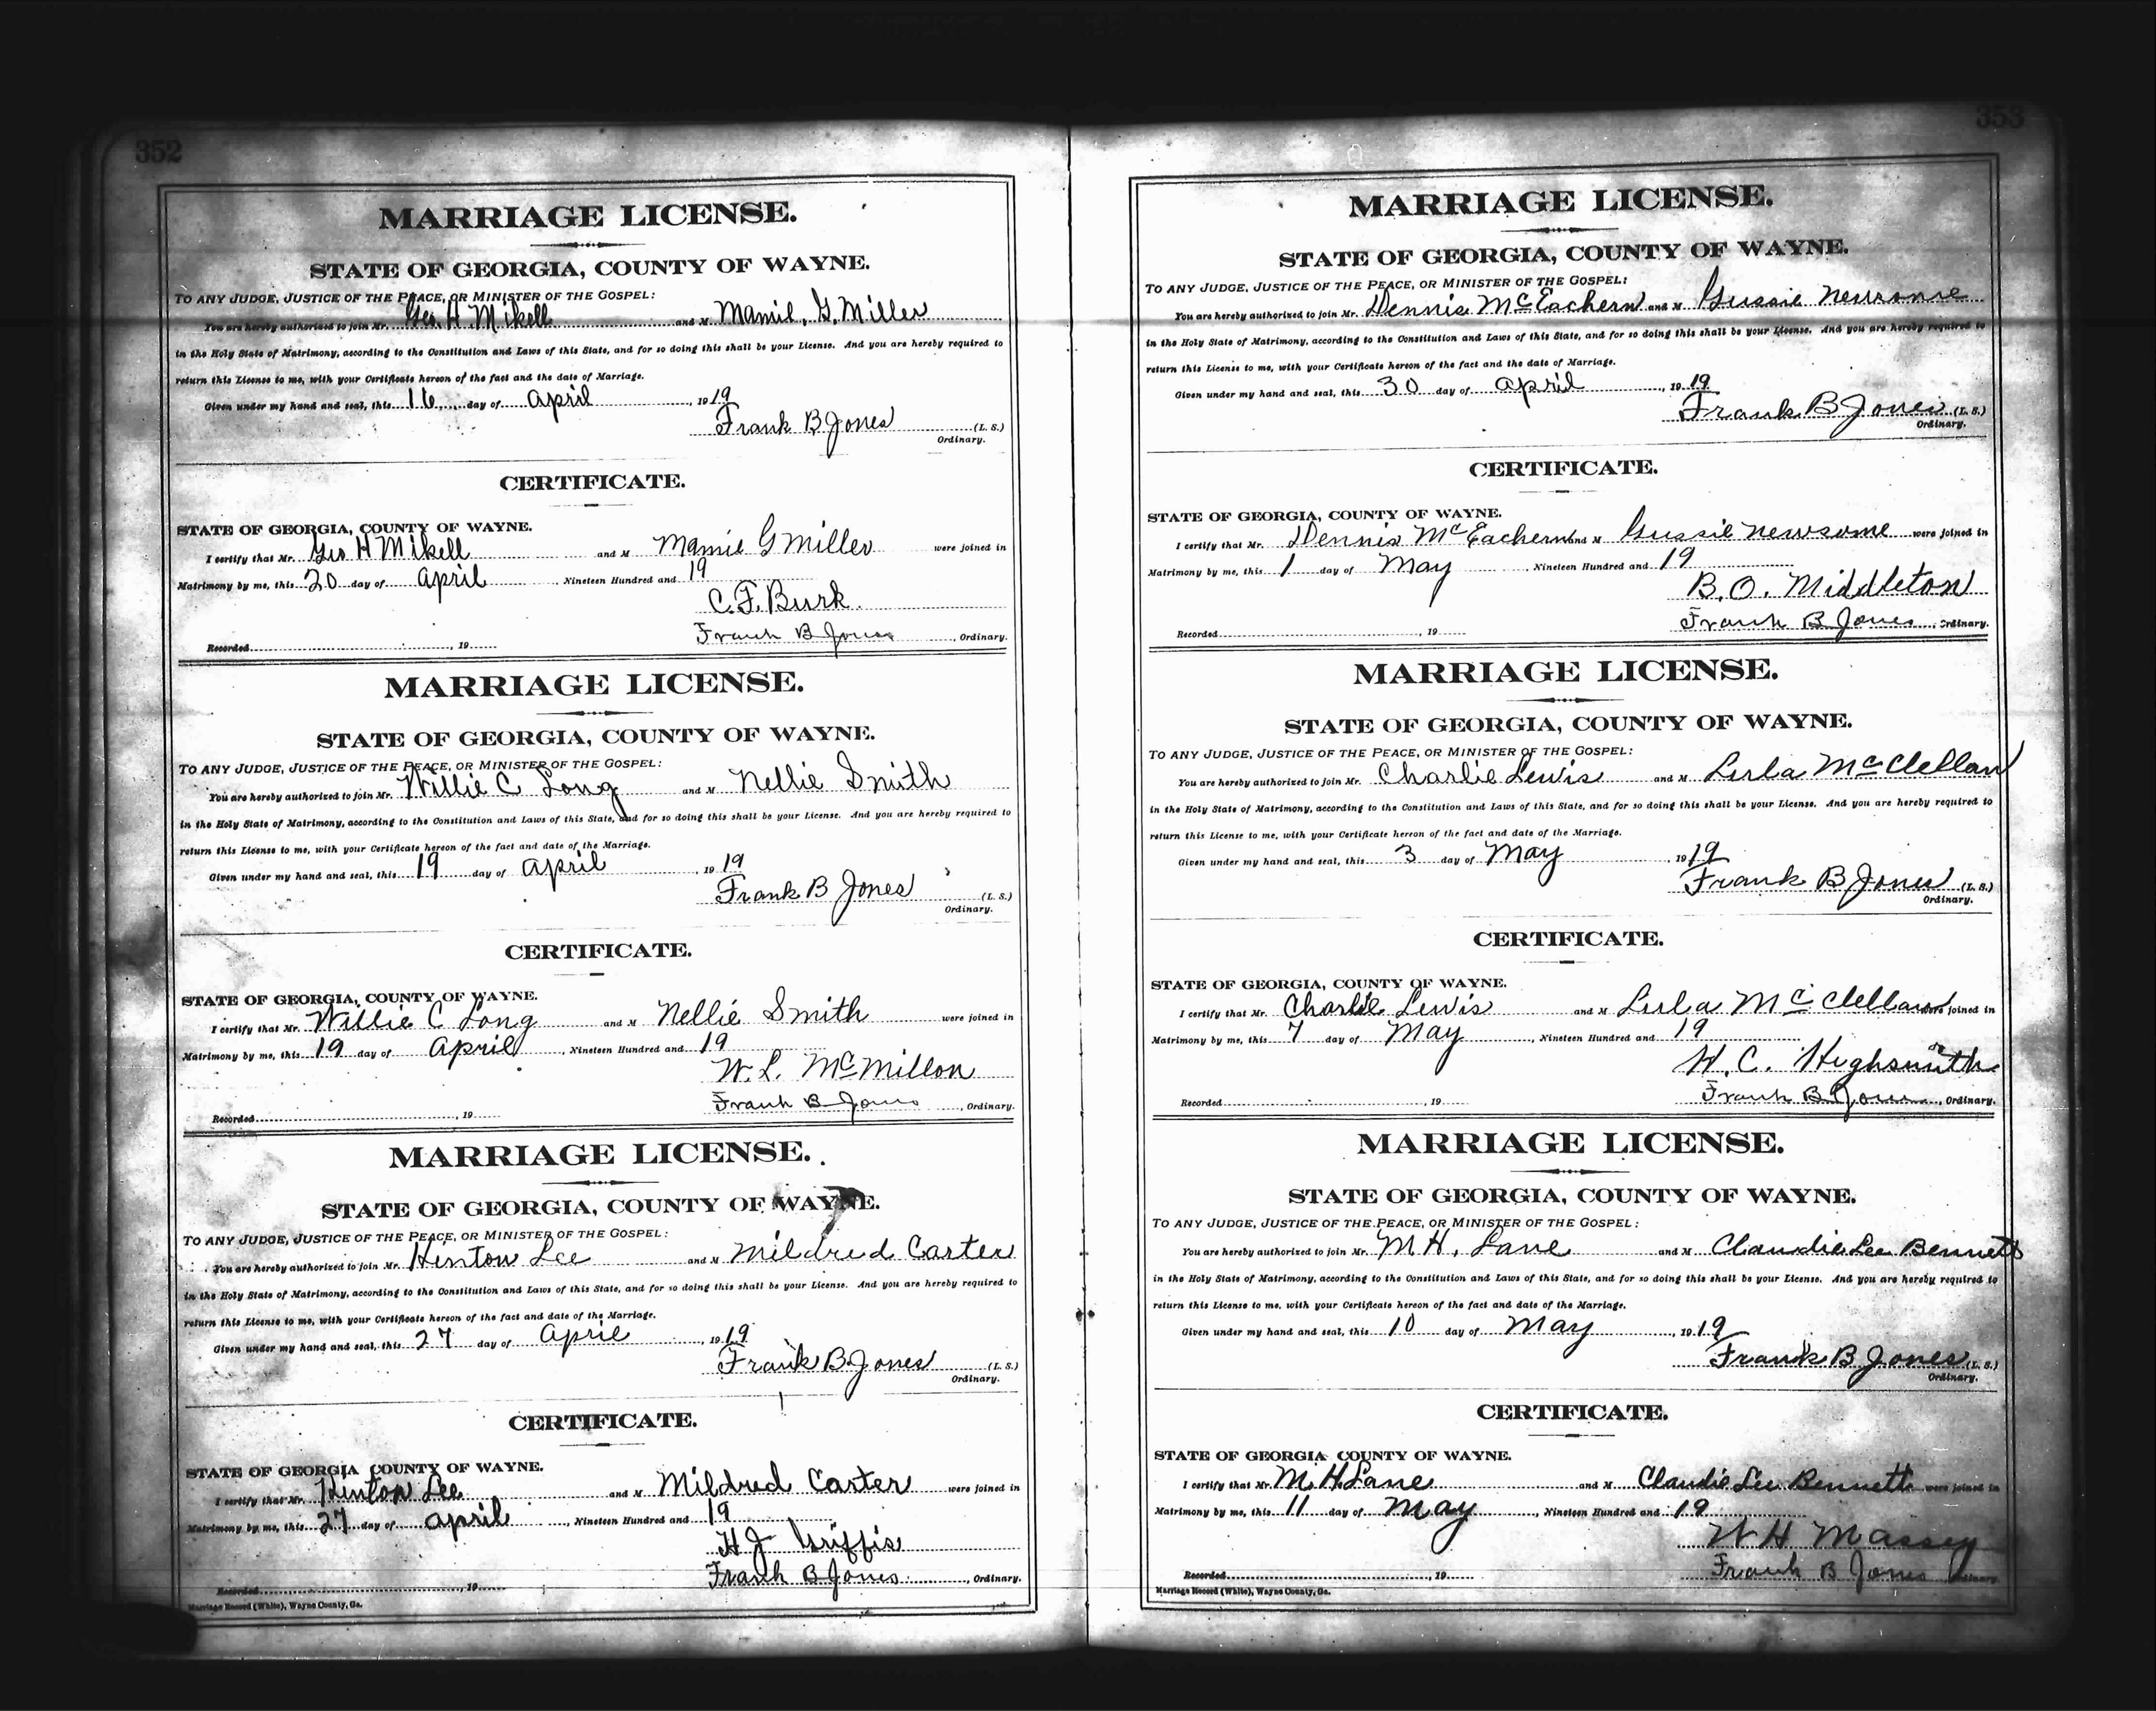 352
MARRIAGE LICENSE.
STATE OF GEORGIA, COUNTY OF WAYNE.
TO ANY JUDGE, JUSTICE OF THE PEACE, OR MINISTER OF THE GOSPEL:
You are hereby authorized to join Mr. Geo. H. Mikell and M Mamie, G. Miller
in the Holy State of Matrimony, according to the Constitution and Laws of this State, and for so doing this shall be your License. And you are hereby required to
return this License to me, with your Certificate hereon of the fact and the date of Marriage.
Given under my hand and seal, this 16 day of April, 1919
Frank B Jones (L. S.)
Ordinary.
CERTIFICATE.
STATE OF GEORGIA, COUNTY OF WAYNE.
I certify that Mr. Geo H Mikell and M Mamie G Miller were joined in
Matrimony by me, this 20 day of April, Nineteen Hundred and 19
C. F. Burk.
Frank B Jones, Ordinary.
Recorded, 19
MARRIAGE LICENSE.
STATE OF GEORGIA, COUNTY OF WAYNE.
TO ANY JUDGE, JUSTICE OF THE PEACE, OR MINISTER OF THE GOSPEL:
You are hereby authorized to join Mr. Willie C Long and M Nellie Smith
in the Holy State of Matrimony, according to the Constitution and Laws of this State, and for so doing this shall be your License. And you are hereby required to
return this License to me, with your Certificate hereon of the fact and date of the Marriage.
Given under my hand and seal, this 19 day of April, 1919
Frank B Jones (L. S.)
Ordinary.
CERTIFICATE.
STATE OF GEORGIA, COUNTY OF WAYNE.
I certify that Mr. Willie C Long and M Nellie Smith were joined in
Matrimony by me, this 19 day of April, Nineteen Hundred and 19
W. L. McMillon
Frank B Jones, Ordinary.
Recorded, 19
MARRIAGE LICENSE.
STATE OF GEORGIA, COUNTY OF WAYNE.
TO ANY JUDGE, JUSTICE OF THE PEACE, OR MINISTER OF THE GOSPEL:
You are hereby authorized to join Mr. Hinton Lee and M Mildred Carter
in the Holy State of Matrimony, according to the Constitution and Laws of this State, and for so doing this shall be your License. And you are hereby required to
return this License to me, with your Certificate hereon of the fact and date of the Marriage.
Given under my hand and seal, this 27 day of April, 1919
Frank B Jones (L. S.)
Ordinary.
CERTIFICATE.
STATE OF GEORGIA COUNTY OF WAYNE.
I certify that Mr. Hinton Lee and M Mildred Carter were joined in
Matrimony by me, this 27 day of April, Nineteen Hundred and 19
H J Griffis
Frank B Jones, Ordinary.
Recorded, 19
Marriage Record (White), Wayne County, Ga.
353
MARRIAGE LICENSE.
STATE OF GEORGIA, COUNTY OF WAYNE.
TO ANY JUDGE, JUSTICE OF THE PEACE, OR MINISTER OF THE GOSPEL:
You are hereby authorized to join Mr. Dennis McEachern and M Gussie Newsome
in the Holy State of Matrimony, according to the Constitution and Laws of this State, and for so doing this shall be your License. And you are hereby required to
return this License to me, with your Certificate hereon of the fact and the date of Marriage.
Given under my hand and seal, this 30 day of April, 1919
Frank B Jones (L. S.)
Ordinary.
CERTIFICATE.
STATE OF GEORGIA, COUNTY OF WAYNE.
I certify that Mr. Dennis McEachern and M Gussie Newsome were joined in
Matrimony by me, this 1 day of May, Nineteen Hundred and 19
B. O. Middleton
Frank B Jones, Ordinary.
Recorded, 19
MARRIAGE LICENSE.
STATE OF GEORGIA, COUNTY OF WAYNE.
TO ANY JUDGE, JUSTICE OF THE PEACE, OR MINISTER OF THE GOSPEL:
You are hereby authorized to join Mr. Charlie Lewis and M Lula McClellan
in the Holy State of Matrimony, according to the Constitution and Laws of this State, and for so doing this shall be your License. And you are hereby required to
return this License to me, with your Certificate hereon of the fact and date of the Marriage.
Given under my hand and seal, this 3 day of May, 1919
Frank B Jones (L. S.)
Ordinary.
CERTIFICATE.
STATE OF GEORGIA, COUNTY OF WAYNE.
I certify that Mr. Charlie Lewis and M Lula McClellan were joined in
Matrimony by me, this 7 day of May, Nineteen Hundred and 19
H. C. Highsmith
Frank B Jones, Ordinary.
Recorded, 19
MARRIAGE LICENSE.
STATE OF GEORGIA, COUNTY OF WAYNE.
TO ANY JUDGE, JUSTICE OF THE PEACE, OR MINISTER OF THE GOSPEL:
You are hereby authorized to join Mr. M H. Lane and M Claudie Lee Bennett
in the Holy State of Matrimony, according to the Constitution and Laws of this State, and for so doing this shall be your License. And you are hereby required to
return this License to me, with your Certificate hereon of the fact and date of the Marriage.
Given under my hand and seal, this 10 day of May, 1919
Frank B Jones (L. S.)
Ordinary.
CERTIFICATE.
STATE OF GEORGIA COUNTY OF WAYNE.
I certify that Mr M. H. Lane and M Claudie Lee Bennett were joined in
Matrimony by me, this 11 day of May, Nineteen Hundred and 19
W H Massey
Frank B Jones Ordinary.
Recorded, 19
Marriage Record (White), Wayne County, Ga.